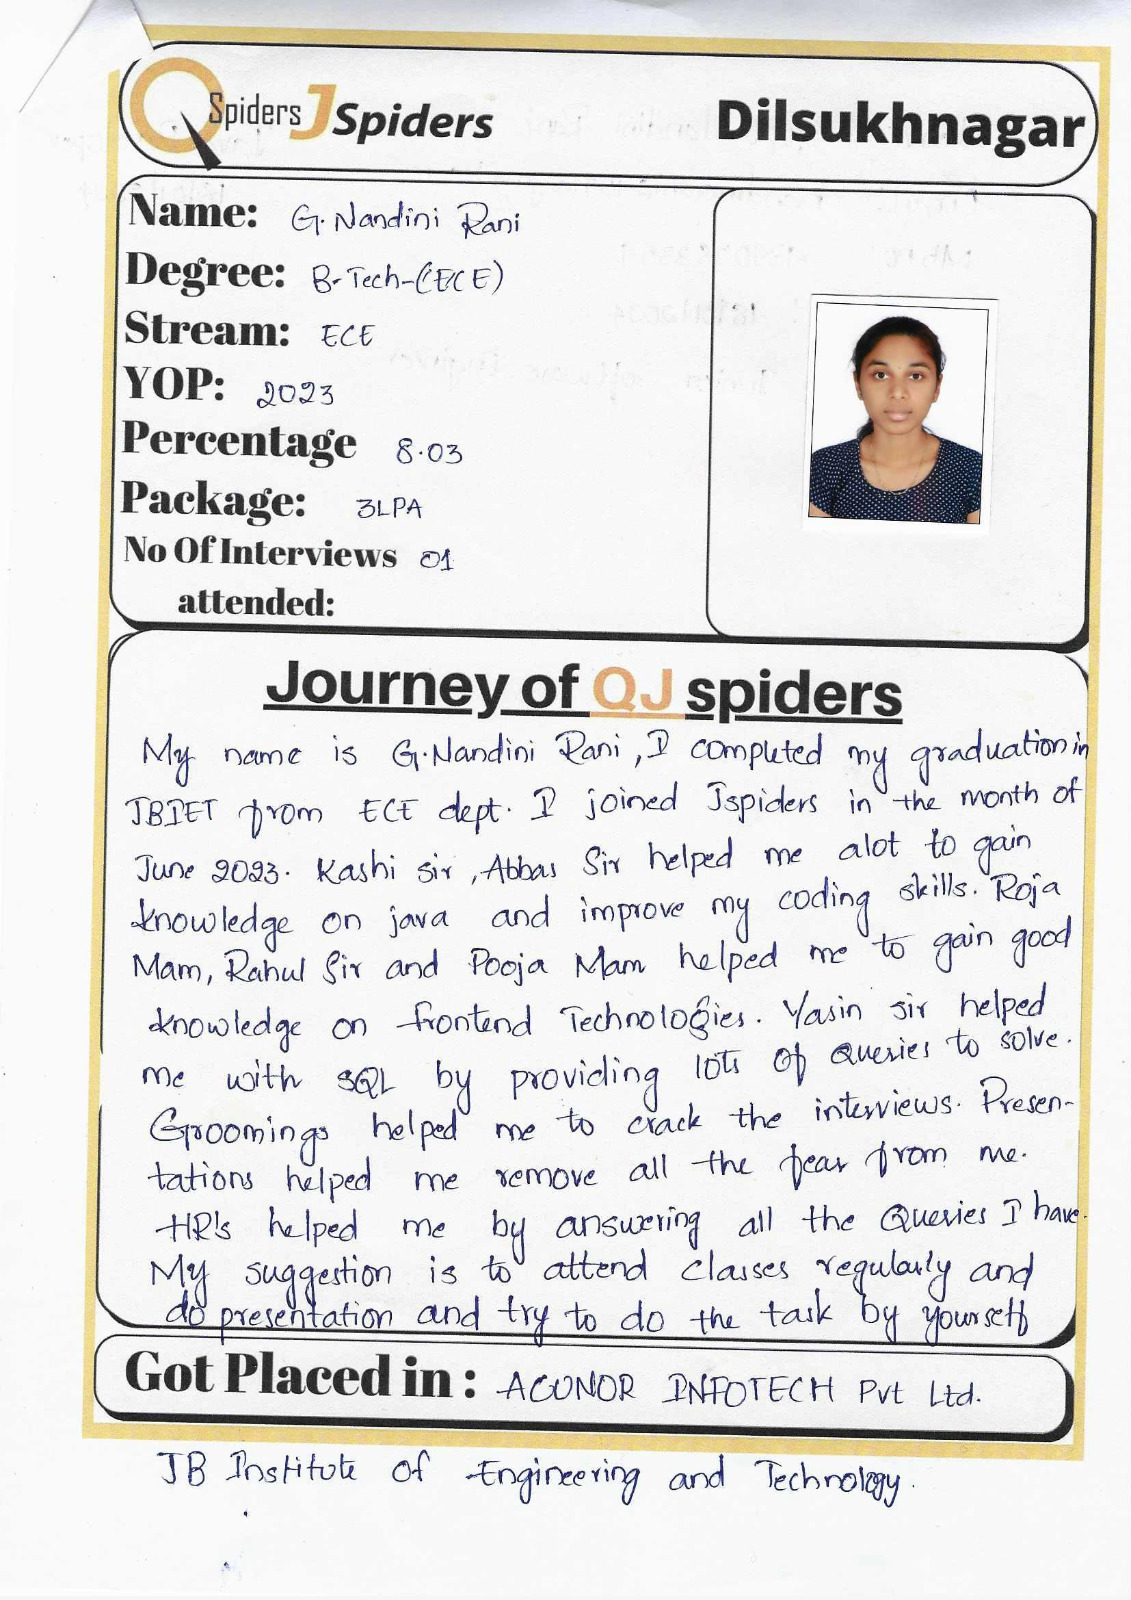 QSpiders JSpiders Dilsukhnagar
Name: G. Nandini Rani
Degree: B-Tech-(ECE)
Stream: ECE
YOP: 2023
Percentage 8.03
Package: 3LPA
No Of Interviews 01
attended:
Journey of QJ spiders
My name is G.Nandini Rani, I completed my graduation in
JBIET from ECE dept. I joined Jspiders in the month of
June 2023. Kashi sir, Abbas Sir helped me alot to gain
knowledge on java and improve my coding skills. Roja
Mam, Rahul Sir and Pooja Mam helped me to gain good
knowledge on frontend Technologies. Yasin sir helped
me with SQL by providing lots of queries to solve.
Groomings helped me to crack the interviews. Presen-
tations helped me remove all the fear from me.
HR's helped me by answering all the Queries I have.
My suggestion is to attend classes regularly and
do presentation and try to do the task by yourself
Got Placed in : ACUNOR INFOTECH Pvt Ltd.
JB Institute Of Engineering and Technology.